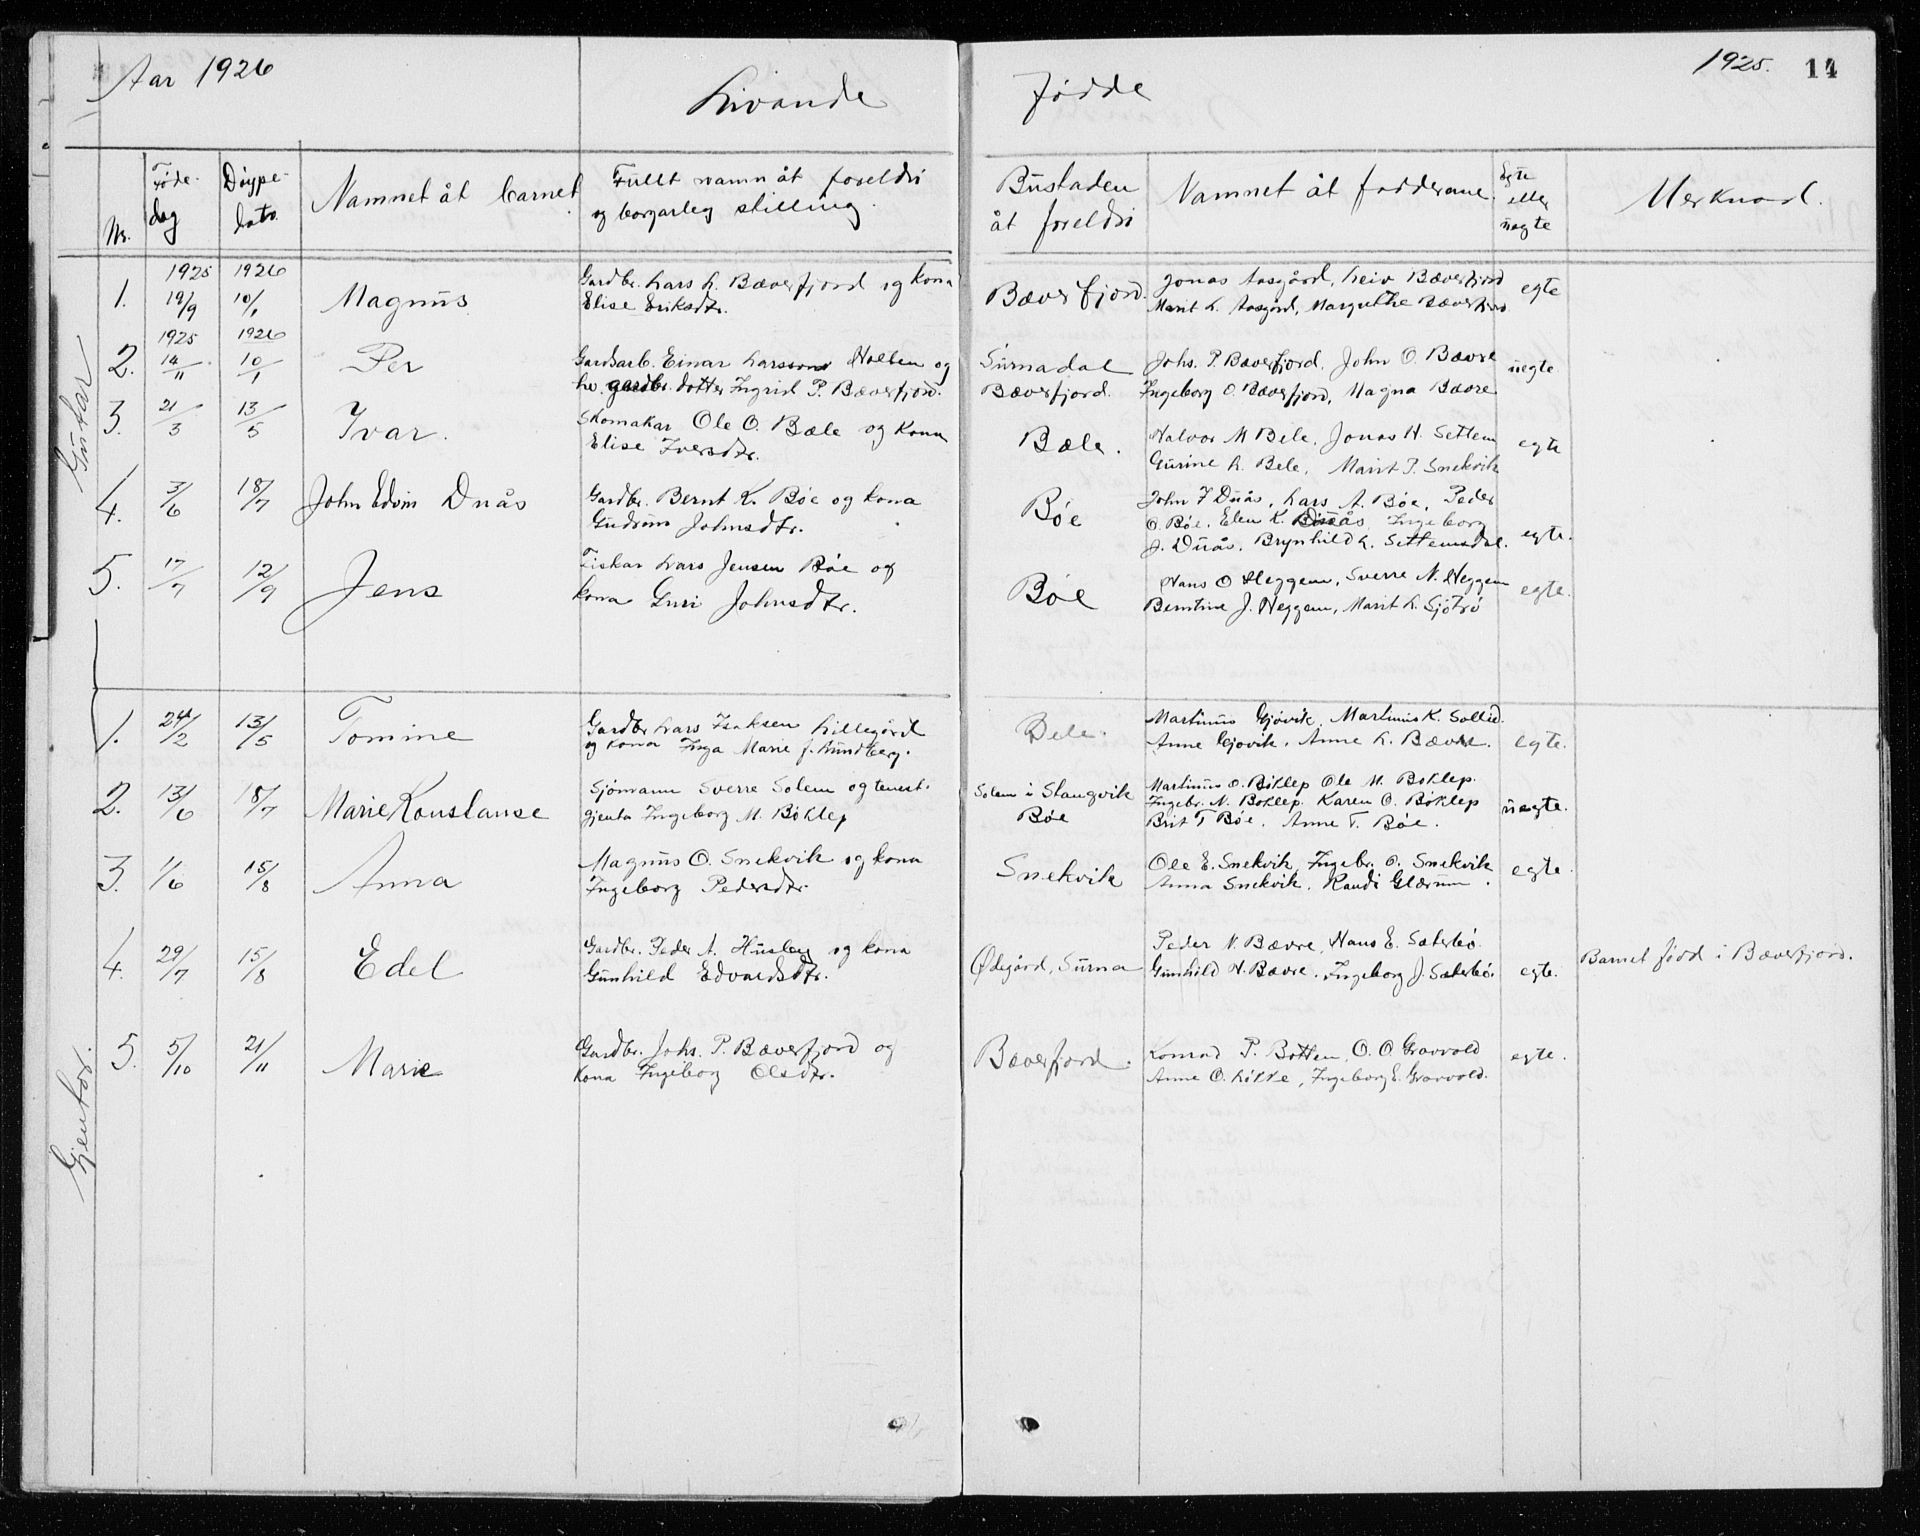 Aar 1926
Livande
Fødde
1925.
14
Nr.
Føde-
dag
Døype-
dato.
Namnet åt barnet
Fullt namn åt foreldri
og borgarleg stilling.
Bustaden
åt foreldri
Namnet åt fadderane
Egte
eller
uegte
Merknad.
Gutar
1.
1925
19/9
1926
10/1
Magnus
Gardbr. Lars L. Bæverfjord og kona
Elise Eriksdtr.
Bæverfjord.
Jonas Aasgård, Leiv Bæverfjord
Marit L. Aasgård, Margrethe Bæverfjord
egte
2.
1925
14/11
1926
10/1
Per
Gardsarb. Einar Larsson Holten og
hv. gardbr. dotter Ingrid P. Bæverfjord.
Surnadal
Bæverfjord.
Johs. P. Bæverfjord. John O. Bævre
Ingeborg O. Bæverfjord, Magna Bævre
uegte
3.
21/3
13/5
Ivar.
Skomakar Ole O. Bæle og kona
Elise Iversdtr.
Bæle.
Halvor M Bele, Jonas H. Settem
Gurine L. Bele, Marit P. Snekvik
egte
4.
3/6
18/7
John Edvin Duås
Gardbr. Bernt K. Bøe og kona
Gudrun Johnsdtr.
Bøe
John J Duås, Lars A. Bøe, Peder
O. Bøe, Elen K. Duås, Ingeborg
J. Duås. Brynhild L. Settemsdal.
egte.
5.
17/7
12/9
Jens
Fiskar Lars Jensen Bøe og
kona Guri Johnsdtr.
Bøe
Hans O Heggem, Sverre N. Heggem
Berntine J. Heggem, Marit L. Sjøtrø
egte.
Gjentor.
1.
24/2
13/5
Tomine
Gardbr Lars Isaksen Lillegård
og kona Inga Marie f. Lundberg.
Bele.
Martinus Gjøvik, Martinus K. Sollid.
Anne Gjøvik. Anne L. Bævre.
egte.
2.
13/6
18/7
Marie Konstanse
Sjømann Sverre Solem og tenest.
gjenta Ingeborg M. Bøklep
Solem i Stangvik
Bøe
Martinus O. Bøklep Ole M. Bøklep.
Ingebr. N. Bøklep. Karen O. Bøklep
Brit T Bøe. Anne T. Bøe.
uegte.
3.
1/6
15/8
Anna
Magnus O. Snekvik og kona
Ingeborg Pedersdtr.
Snekvik
Ole E. Snekvik, Ingebr. O. Snekvik
Anna Snekvik. Randi Glærum.
egte.
4.
29/7
15/8
Edel
Gardbr. Peder A. Husby og kona
Gunhild Edvardsdtr.
Ødegård, Surna
Peder N. Bævre, Hans E. Sæterbø
Gunhild H. Bævre. Ingeborg J. Sæterbø.
egte.
Barnet fødd i Bæverfjord.
5.
5/10
21/11
Marie
Gardbr. Johs. P. Bæverfjord og
kona Ingeborg Olsdtr.
Bæverfjord.
Konrad P. Botten, O. O Gravvold
Anne O. Løkke, Ingeborg E. Gravvold.
egte.